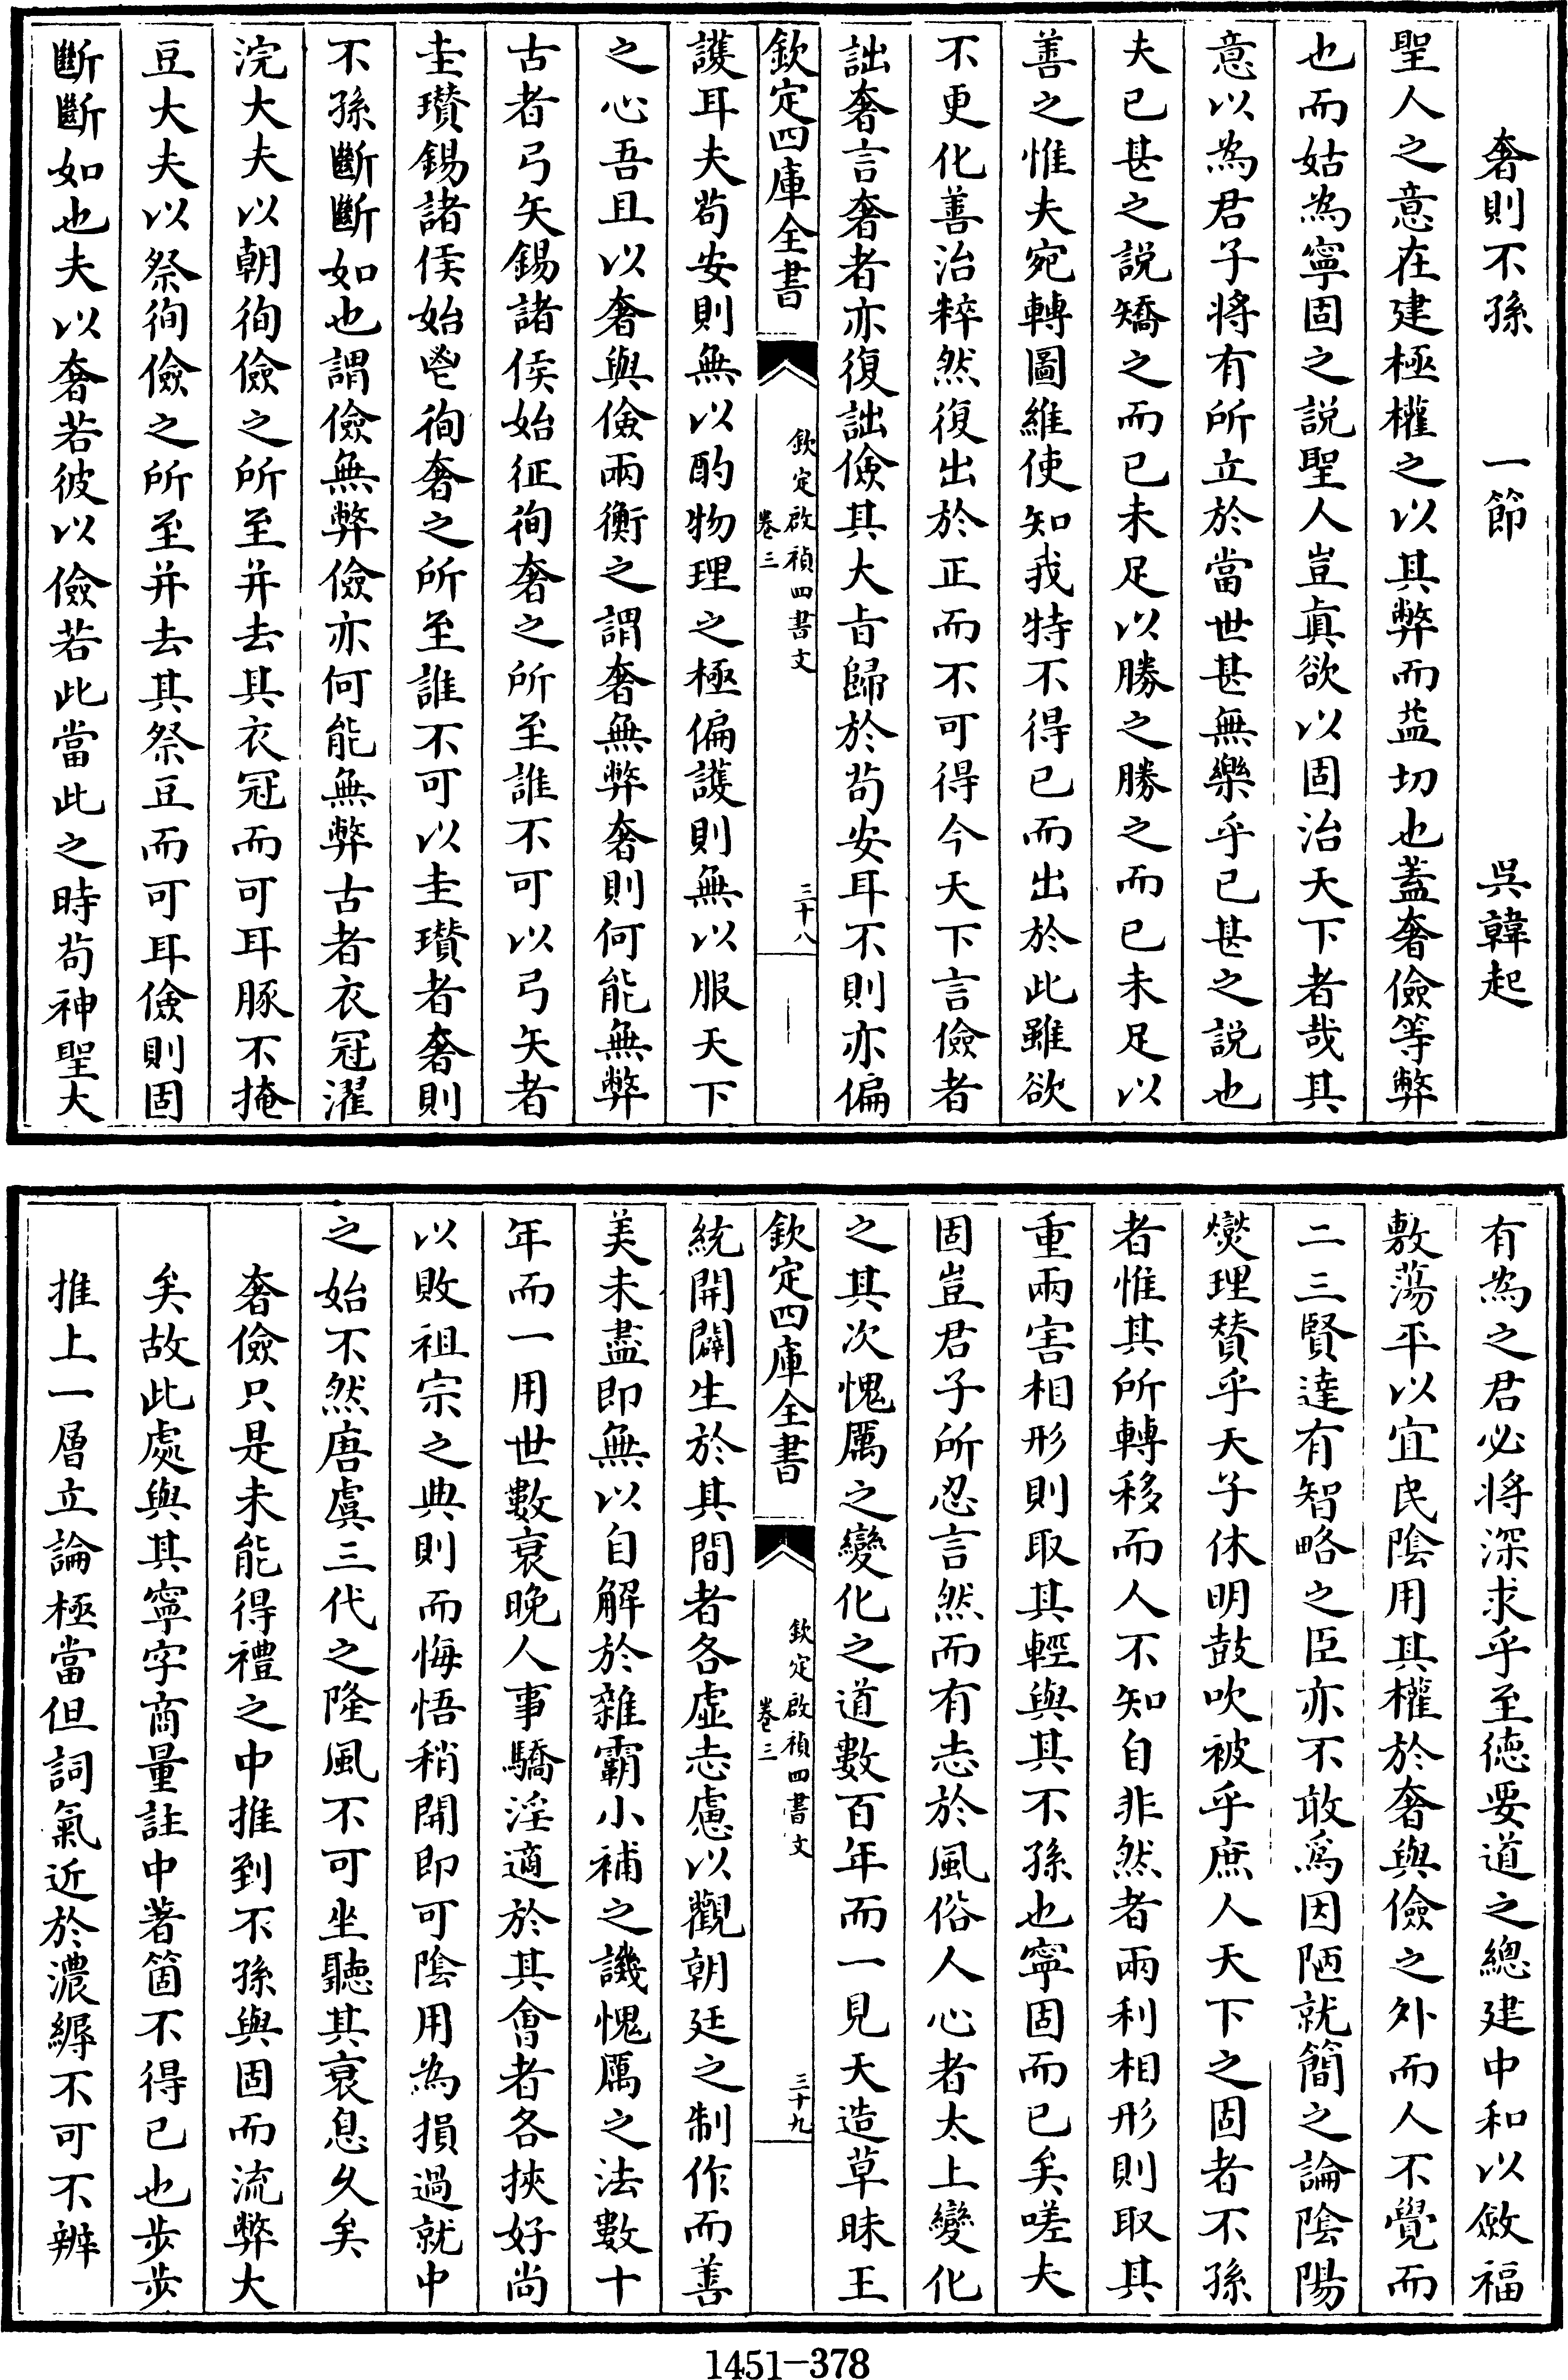 奢則不孫　一節　吳韓起
聖人之意在建極權之以其弊而益切也蓋奢儉等弊
也而姑為寧固之說聖人豈真欲以固治天下者哉其
意以為君子將有所立於當世甚無樂乎已甚之說也
夫已甚之說矯之而已未足以勝之勝之而已未足以
善之惟夫宛轉圖維使知我特不得已而出於此雖欲
不更化善治粹然復出於正而不可得今天下言儉者
詘奢言奢者亦復詘儉其大旨歸於茍安耳不則亦偏
欽定四庫全書
欽定啟禎四書文
卷三
三十八
護耳夫茍安則無以酌物理之極偏護則無以服天下
之心吾且以奢與儉兩衡之謂奢無弊奢則何能無弊
古者弓矢錫諸侯始征徇奢之所至誰不可以弓矢者
圭瓚錫諸侯始鬯徇奢之所至誰不可以圭瓚者奢則
不孫斷斷如也謂儉無弊儉亦何能無弊古者衣冠濯
浣大夫以朝徇儉之所至并去其衣冠而可耳豚不掩
豆大夫以祭徇儉之所至并去其祭豆而可耳儉則固
斷斷如也夫以奢若彼以儉若此當此之時茍神聖大
有為之君必將深求乎至德要道之總建中和以斂福
敷蕩平以宜民陰用其權於奢與儉之外而人不覺而
二三賢達有智略之臣亦不敢為因陋就簡之論陰陽
爕理賛乎天子休明鼓吹被乎庶人天下之固者不孫
者惟其所轉移而人不知自非然者兩利相形則取其
重兩害相形則取其輕與其不孫也寧固而已矣嗟夫
固豈君子所忍言然而有志於風俗人心者太上變化
之其次愧厲之變化之道數百年而一見天造草昧王
欽定四庫全書
欽定啟禎四書文
卷三
三十九
統開闢生於其間者各虛志慮以觀朝廷之制作而善
美未盡即無以自解於雜霸小補之譏愧厲之法數十
年而一用世數衰晚人事驕淫適於其會者各挾好尚
以敗祖宗之典則而悔悟稍開即可陰用為損過就中
之始不然唐虞三代之隆風不可坐聽其衰息久矣
奢儉只是未能得禮之中推到不孫與固而流弊大
矣故此處與其寧字商量註中著箇不得已也步步
推上一層立論極當但詞氣近於濃縟不可不辨
1451-378